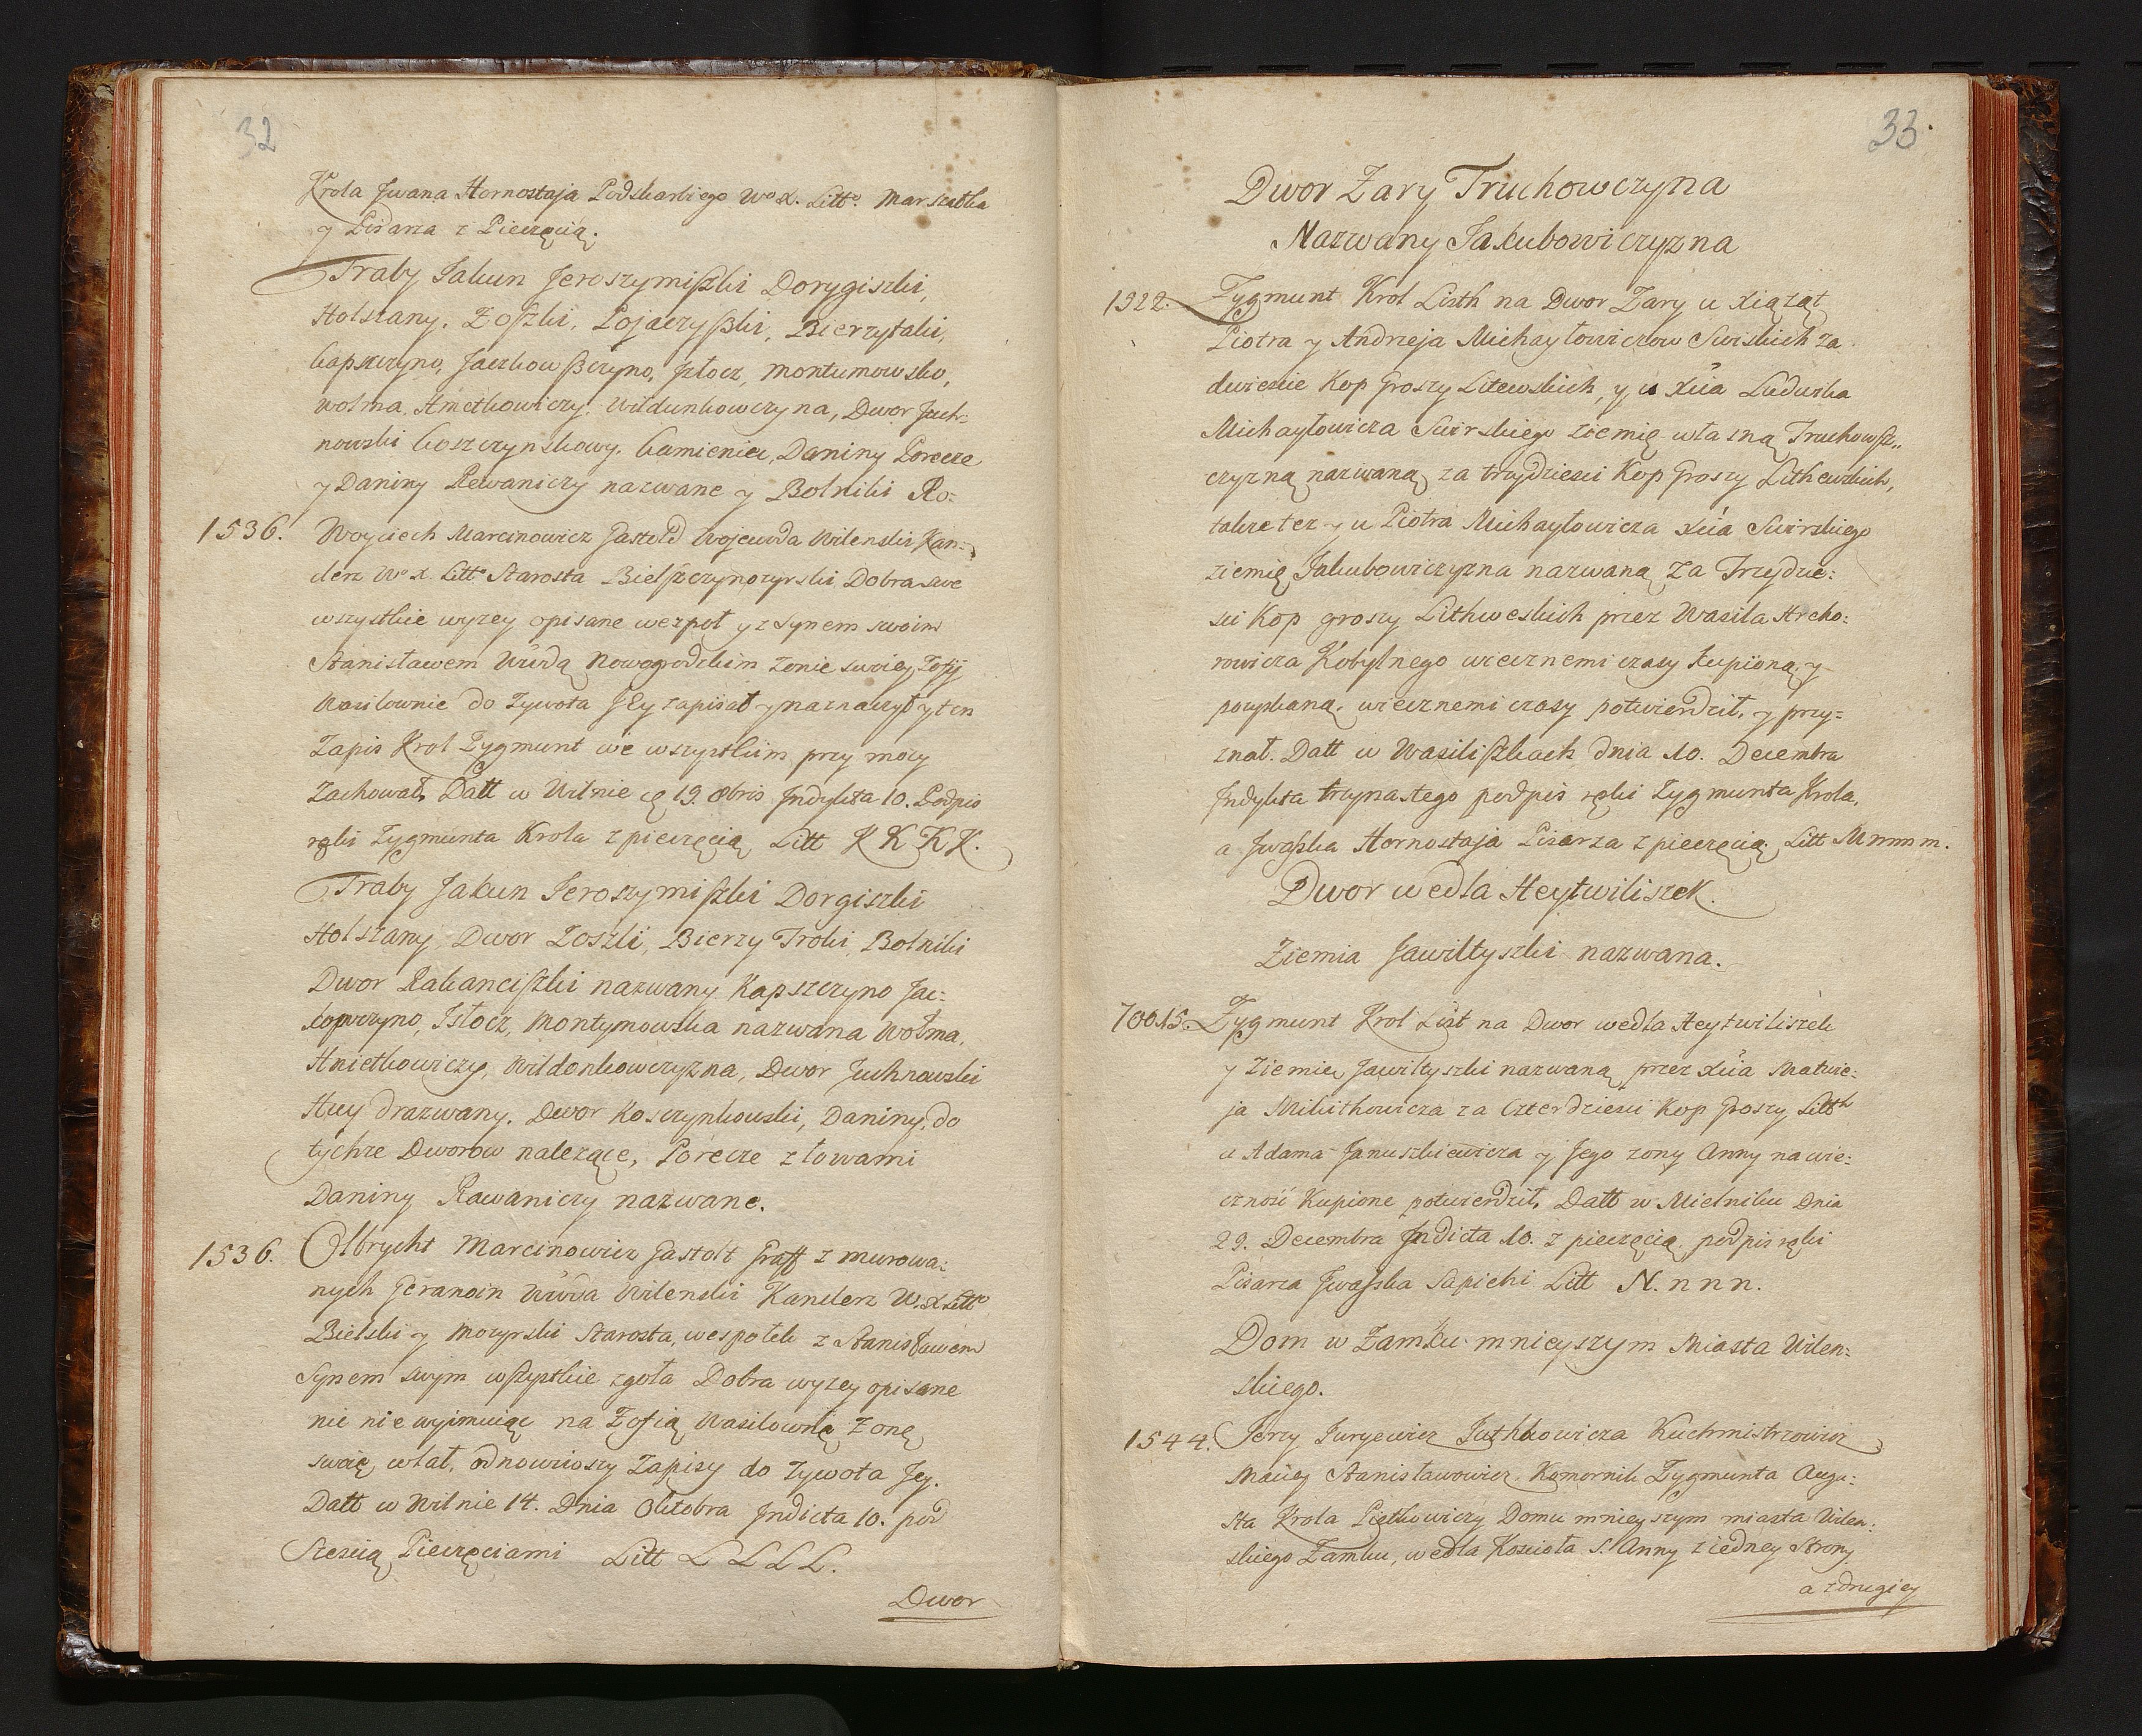 32
Krola Jwana Hornostaja Podskarbiego Wo X. Litto. Marszałka
y Pisarza z Pieczęcią.
Traby Jakun Jeroszymiszki Dorygiszki,
Holszany. Zoszki, Pojaczyszki, Bierzytalki,
Kapszczyno, Jaczkowszczyno, Jzłocz, Montumowsko,
Wołma, Hnietkowiczy. Wildunkowczyna, Dwor Juch-
nowski Koszczynskowy. Kamieniec, Daniny Porecze
y Daniny Rewaniczy nazwane y Bolniki Ro:
1536. Woyciech Marcinowicz Gastołd Wojewoda Wilenski Kan-
clerz Wo X Litto Starosta Bielszczynozyrski Dobra swe
wszystkie wyzey opisane wezpoł y z Synem swoim
Stanisławem Wwdą Nowogrodzkim zonie swoiey Zofij
Wasilownie do Zywota Jey zapisał y naznaczył y ten
Zapis Krol Zygmunt we wszystkim przy mocy
Zachował, Datt w Wilnie 19. 8bris Jndykta 10. Podpis
ręki Zygmunta Krola z pieczęcią Litt K K K K.
Traby Jakun Jeroszymiszki Dorgiszki
Holszany, Dwor Loszki, Bierzy Troki, Bolniki
Dwor Rakanciszki nazwany Kapszczyno Jac:
kowczyno, Jsłocz, Montymowska nazwana Wołma,
Hnietkowiczy, Wildonkowczyzna, Dwor Juchnowski
Huy drazwany. Dwor Koszczynkowski, Daniny, do
tychze Dworow nalezące, Porecze z łowami
Daniny Rawaniczy nazwane.
1536. Olbrycht Marcinowicz Gastołt Graff z murowa:
nych Geranoin Wwda Wilenski Kanclerz W. X Litto
Bielski y Mozyrski Starosta, wespołek z Stanisławem
Synem swym wszystkie zgoła Dobra wyzey opisane
nic nie wyimuiąc na Zofią Wasilownę Zonę
swoię wlał, odnowiwszy Zapisy do Zywota Jey.
Datt w Wilnie 14. Dnia Oktobra Jndicta 10. pod
Szescią Pieczęciami Litt L L L L.
Dwor
33.
Dwor Zary Truchowczyzna
Nazwany Jakubowiczyzna
1522. Zygmunt Krol Listh na Dwor Zary u Xiąząt
Piotra y Andrzeja Michayłowiczow Swirskich za
dwiescie Kop Groszy Litewskich, y u Xcia Ludwika
Michayłowicza Swirskiego ziemię własną Truchowsz„
czyzną nazwaną za trzydziesci Kop Groszy Lithewskich,
takze tez y u Piotra Michayłowicza Xcia Swirskiego
ziemię Jakubowiczyzna nazwaną za Trzydzie:
sci Kop groszy Lithweskich przez Wasila Hrcho:
rowicza Kobylnego wiecznemi czasy kupioną, y
pozyskaną, wiecznemi czasy potwierdził, y przy=
znał. Datt w Wasiliszkach dnia 10. Decembra
Jndykta trzynastego podpis ręki Zygmunta Krola,
a Jwaszka Hornostaja Pisarza z pieczęcią, Litt M m m m.
Dwor wedla Heytwiliszek.
Ziemia Jawiltyszki nazwana.
70015. Zygmunt Krol List na Dwor wedla Heytwiliszek
y Ziemię Jawiltyszki nazwaną przez Xcia Matwie:
ja Mikithowicza za Czterdziesci Kop Groszy Litth
u Adama Januszkiewicza y Jego zony Anny na wie:
cznosć Kupione potwierdził, Datt w Mielniku Dnia
29. Decembra Jndicta 10. z pieczęcią podpis ręki
Pisarza Jwaszka Sapiehi Litt N. n n n.
Dom w Zamku mnieyszym Miasta Wilen:
skiego.
1544. Jerzy Juryewicz Juthkowicza Kuchmistrzowicz
Maciey Stanisławowicz Komornik Zygmunta Augu:
sta Krola Piętkowiczy Domu mnieyszym miasta Wilen:
skiego Zamku, wedla Koscioła S. Anny z iedney Strony
a z drugiey